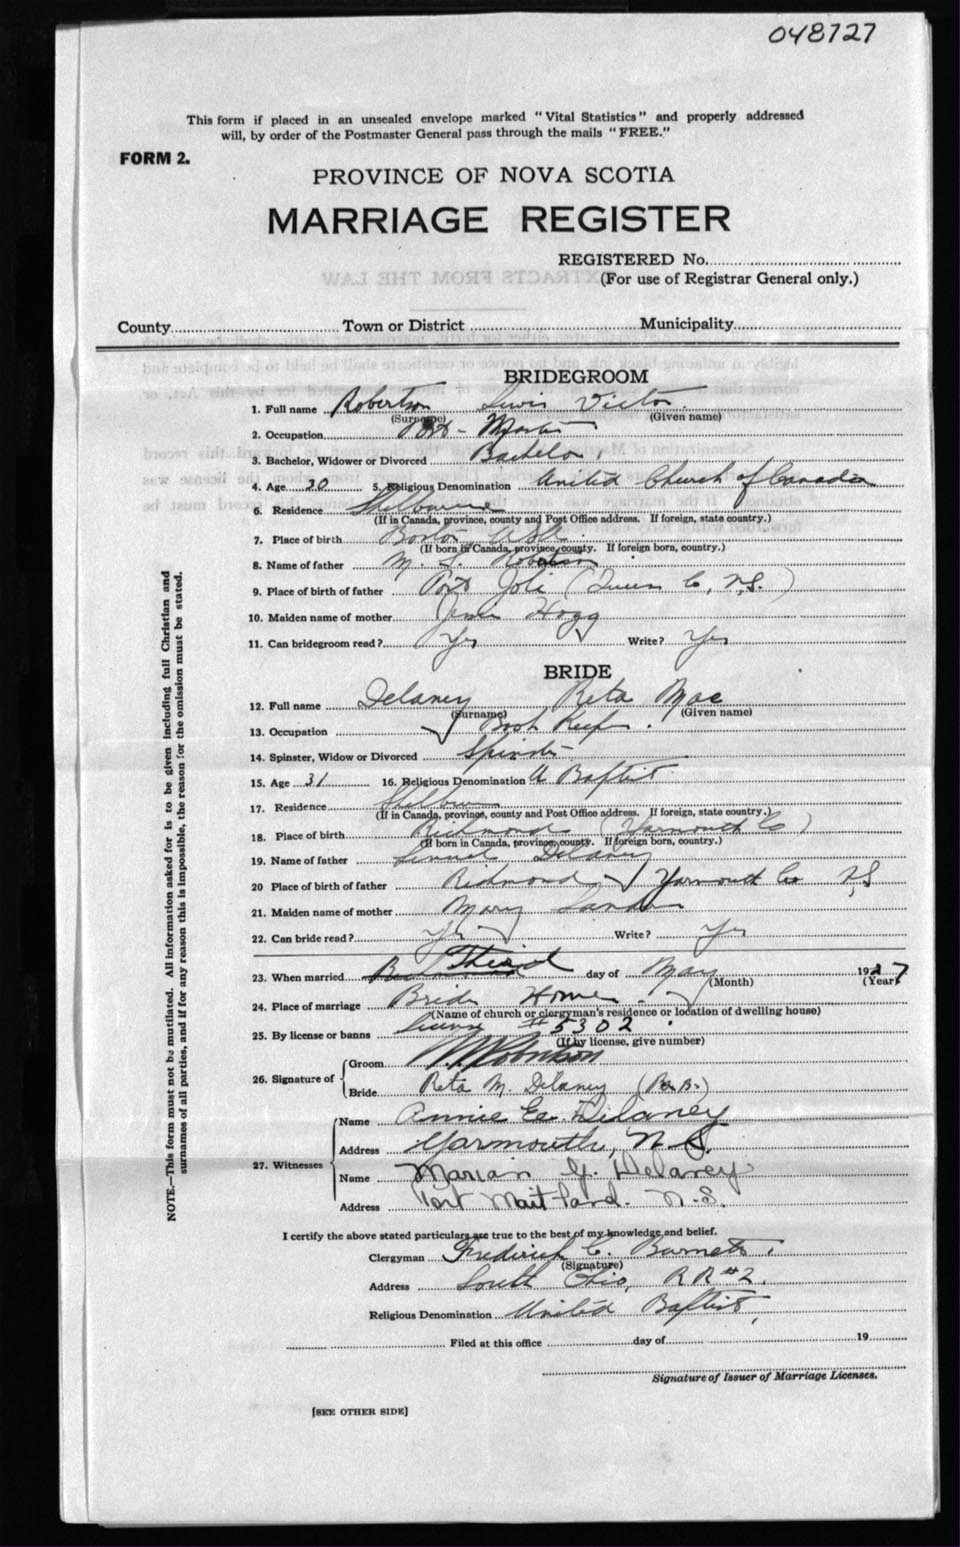 048727
This form if placed in an unsealed envelope marked "Vital Statistics" and properly addressed
will, by order of the Postmaster General pass through the mails "FREE."
FORM 2.
PROVINCE OF NOVA SCOTIA
MARRIAGE REGISTER
REGISTERED No.
(For use of Registrar General only.)
EXTRACTS FROM THE LAW
County Town or District Municipality
BRIDEGROOM
1. Full name Robertson Lewis Victor
(Surname) (Given name)
2. Occupation
3. Bachelor, Widower or Divorced Bachelor
4. Age 30 5. Religious Denomination United Church of Canada
6. Residence Shelburne
(If in Canada, province, county and Post Office address. If foreign, state country.)
7. Place of birth Boston USA.
(If born in Canada, province, county. If foreign born, country.)
8. Name of father M. L. Robertson
9. Place of birth of father Port Joli (Queens Co, N.S.)
10. Maiden name of mother Hogg
11. Can bridegroom read? Yes Write? Yes
BRIDE
12. Full name Delaney Reta Mae
(Surname) (Given name)
13. Occupation Book Keeper.
14. Spinster, Widow or Divorced Spinster
15. Age 31 16. Religious Denomination U Baptist
17. Residence Shelburne
(If in Canada, province, county and Post Office address. If foreign, state country.)
18. Place of birth Richmond (Yarmouth Co)
(If born in Canada, province, county. If foreign born, country.)
19. Name of father Delaney
20 Place of birth of father Richmond Yarmouth Co N.S
21. Maiden name of mother Mary
22. Can bride read? Yes Write? Yes
23. When married Third day of May 1927
(Month) (Year)
24. Place of marriage Brides Home.
(Name of church or clergyman's residence or location of dwelling house)
25. By license or banns License #5302.
(If by license, give number)
26. Signature of Groom
Bride Reta M. Delaney
27. Witnesses Name Annie E. Delaney
Address Yarmouth, N.S.
Name Marian G. Delaney
Address Port Maitland. N.S.
I certify the above stated particulars are true to the best of my knowledge and belief.
Clergyman Frederick C. Burnett.
(Signature)
Address South Ohio, R R #2.
Religious Denomination United Baptist,
Filed at this office day of 19
Signature of Issuer of Marriage Licenses.
[SEE OTHER SIDE]
NOTE.—This form must not be mutilated. All information asked for is to be given including full Christian and
surnames of all parties, and if for any reason this is impossible, the reason for the omission must be stated.